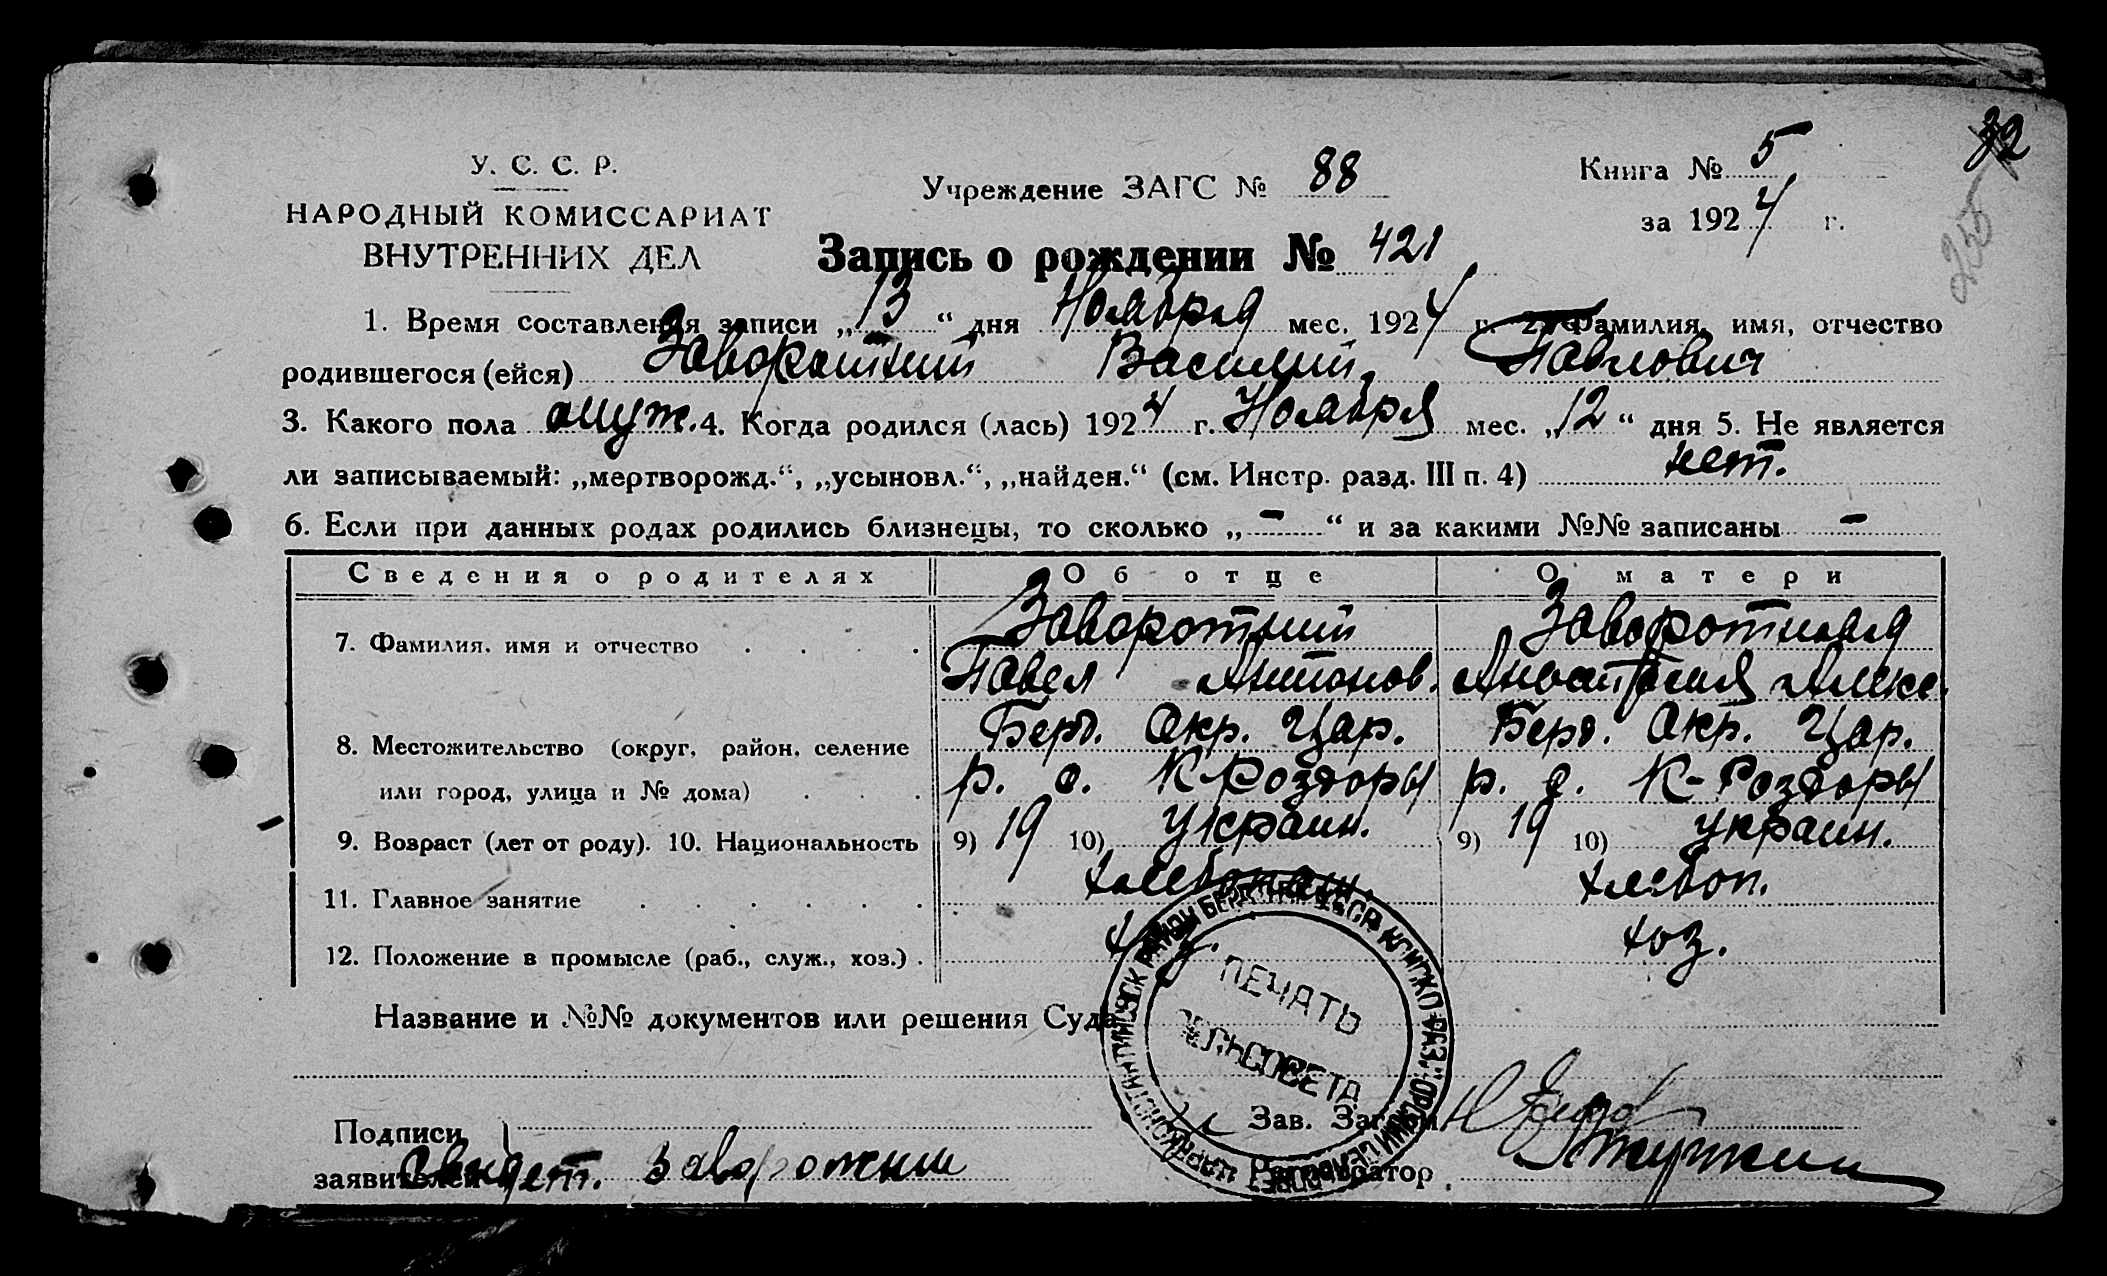 У. С. С. Р.
НАРОДНЫЙ КОМИССАРИАТ
ВНУТРЕННИХ ДЕЛ
Учреждение ЗАГС № 88
Книга № 5
за 1924 г.
32
Запись о рождении № 421
1. Время составления записи „13“ дня Ноября мес. 1924 г. 2. Фамилия, имя, отчество
родившегося (ейся) Заворотний Василий, Павлович
3. Какого пола муж. 4. Когда родился (лась) 1924 г. Ноября мес. „12“ дня 5. Не является
ли записываемый: „мертворожд.“, „усыновл.“, „найден.“ (см. Инстр. разд. III п. 4) нет.
6. Если при данных родах родились близнецы, то сколько „ – “ и за какими №№ записаны –
Сведения о родителях Об отце О матери
7. Фамилия, имя и отчество Заворотний Заворотная
Павел Антонов. Анастасия Алекс.
8. Местожительство (округ, район, селение Берд. Окр. Цар. Берд. Окр. Цар.
или город, улица и № дома) р. с. К-Роздоры р. с. К-Роздоры
9. Возраст (лет от роду). 10. Национальность 9) 19 10) украин. 9) 19 10) украин.
11. Главное занятие хлебопаш. хлебоп.
12. Положение в промысле (раб., служ., хоз.) хоз. хоз.
Название и №№ документов или решения Суда
ПЕЧАТЬ
СЕЛЬСОВЕТА
Подписи
заявителей Заворотний
Зав. Загсом
Регистратор